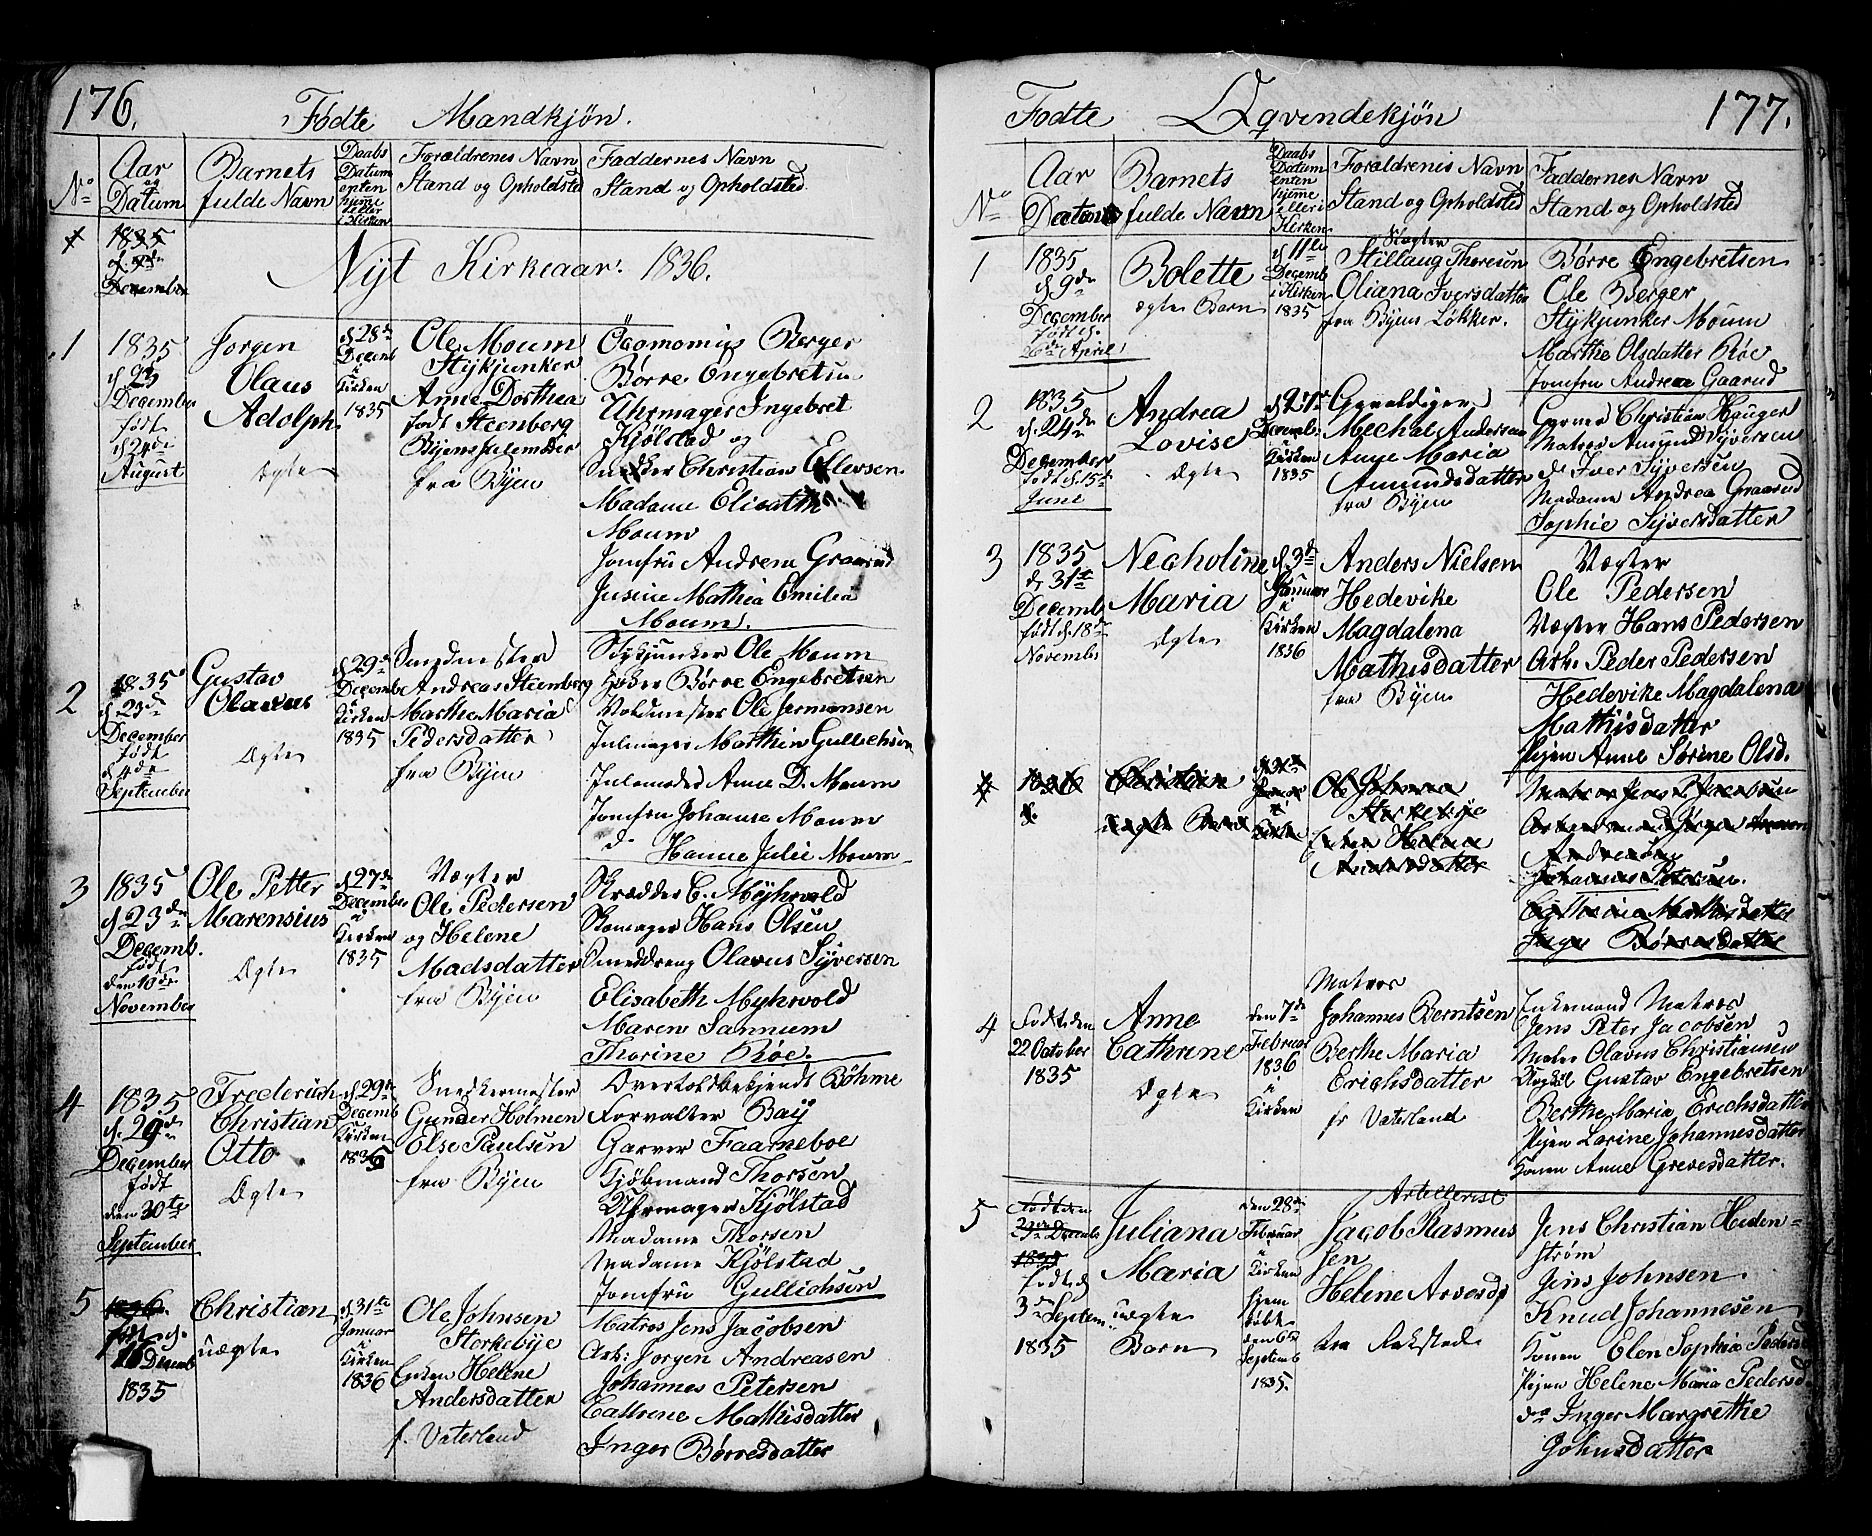 176.
Födte Mandkjøn.
No
Aar
og
Datum
Barnets
fulde Navn
Daabs
Datum
enten
hjeme
eller i
Kirken
Forældrenes Navn
Stand og Opholdsted
Faddernes Navn
Stand og Opholdsted
1835
December
Nyt Kirkeaar. 1836.
1
1835
d 23
December
født
d 24de
August
Jorgen
Olaus
Adolph.
Ægte
d 28de
Decemb
i
Kirken
1835
Ole Moum
Stykjunker
Anne Dorthea
født Steenberg
Byens Julemoder
fra Byen
Oeconomius Berger
Børre Engebretsen
Uhrmager Ingebret
Kjölstad og
Snedker Christian Ellevsen
Madame Elisabth
Moum
Jomfru Andrea Graarud
Jusine Mathea Emilea
Moum.
2
1835
d 23de
December
født
d 4de
September
Gustav
Olavus
Ægte
d 29de
Decemb
i
Kirken
1835
Smedmester
Andreas Steenberg
Marthe Maria
Pedersdatter
fra Byen
Stykjunker Ole Moum
Børre Engebretsen
Voldmester Ole Jermansen
Julmager Marthin Gullichsen
Julemoder Anne D. Moum
Jomfru Johanne Moum
do Hanne Julie Moum
3
1835
d 23de
Decemb.
født
den 10de
November
Ole Petter
Marensius
Ægte
d 27de
December
i
Kirken
1835
Vægter
Ole Pedersen
og Helene
Madsdatter
fra Byen
Skrædder C. Myhrvold
Skomager Hans Olsen
Smeddreng Olavus Syversen
Elisabeth Myhrvold
Maren Sannum
Thorine Röe.
4
1835
d. 29de
December
født
den 30te
September
Frederich
Christian
Otto
Ægte
d 29de
Decemb
i
Kirken
1835
Snedkermester
Gunder Holmen
Else Paulsen
fra Byen
Overtoldbetjendt Böhme
Forvalter Baÿ
Garver Faarneboe
Kjöbmand Thorsen
Uhrmager Kjölstad
Madame Thorsen
Madame Kjölstad
Jomfru Gullichsen
5
1836.
født d.
26 Decemb
1835
Christian
uægte
d 31te
Januar
i
Kirken
1836
Ole Johnsen
Storkebÿe
Enken Helene
Andersdatter
f. Vaterland
Matros Jens Jacobsen
Arb: Jorgen Andreasen
Johannes Petersen
Cathrine Mathisdatter
Inger Børresdatter
177.
Fødte Qqvindekjøn
No
Aar
Datum
Barnets
fulde Navn
Daabs
Datum
enten
hjeme
eller i
Kirken
Forældrenis Navn
Stand og Opholdsted
Faddernes Navn
Stand og Opholdsted
1
1835
d 9de
December
født d.
April
Bolette
ægte Barn
d 11te
Decemb
i Kirken
1835
Stillaug Thoresen
Oliana Iversdatter
fra Byens Løkker.
Børre Engebretsen
Ole Berger
Stykjunker Moum
Marthe Olsdatter Röe
Jomfru Andrea Gaarud
2
1835
d. 24de
December
født d. 15de
June
Andrea
Lovise
Ægte
Decemb.
i
Kirken
1835
Gevaldiger
Mechal Andersen
Anne Maria
Amundsdatter
fra Byen
Christian Hauger
Matros Amund Syversen
do Iver Syversen
Madame Andrea Graarud
Sophie Syversdatter
3
1835
d. 31te
Decemb
født d. 18de
November
Necholine
Maria
Ægte
d. 3de
Januar
i
Kirken
1836
Anders Nielsen
Hedevike
Magdalena
Mathisdatter
fra Byen
Vægter
Ole Pedersen
Vægter Hans Pedersen
Arb. Peder Pedersen
Hedevike Magdalena
Mathisdatter
Pigen Anne Sørine Olsd.
1836
d.
Christian
uægte Barn
i
Kirken
Ole Johnsen
Storkebÿe
Enken Helene
Andersdatter
Matros Jens Jacobsen
Andreasen
Johannes Petersen.
Cathrine Mathisdatter
Inger Børresdatter
4
Født den
22 October
1835
Anne
Cathrine
Ægte
den 7de
Februar
1836
i
Kirken
Matros
Johannes Berntsen
Berthe Maria
Erichsdatter
fr Vaterland
Enkemand Matros
Jens Peter Jacobsen
Matros Olavus Christiansen
Gustav Engebretsen
Berthe Maria Erichsdatter
Pigen Larine Johannesdatter
Konen Anne Grevesdatter.
5
Født den
29de Decemb
1835
født d.
3de Septem
1835
Juliana
Maria
uægte
Barn
den 28de
Februar
i
Kirken
hjem
døbt
den 6te
Septemb
1835.
Artellerist
Jacob Rasmus
sen
Helene Arvesd.
fra Aakstad
Jens Christian Heden-
strøm
Jens Johnsen
Knud Johannesen
Konen Elen Sophia Pedersd
Pigen Helene Maria Pedersd
do Inger Margrethe
Johnsdatter